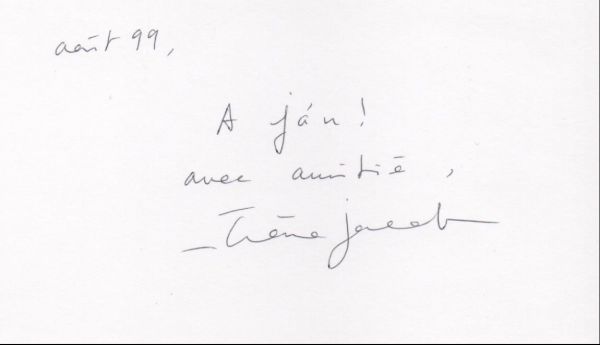 août 99,
A Ján!
avec amitié,
– Irène Jacob